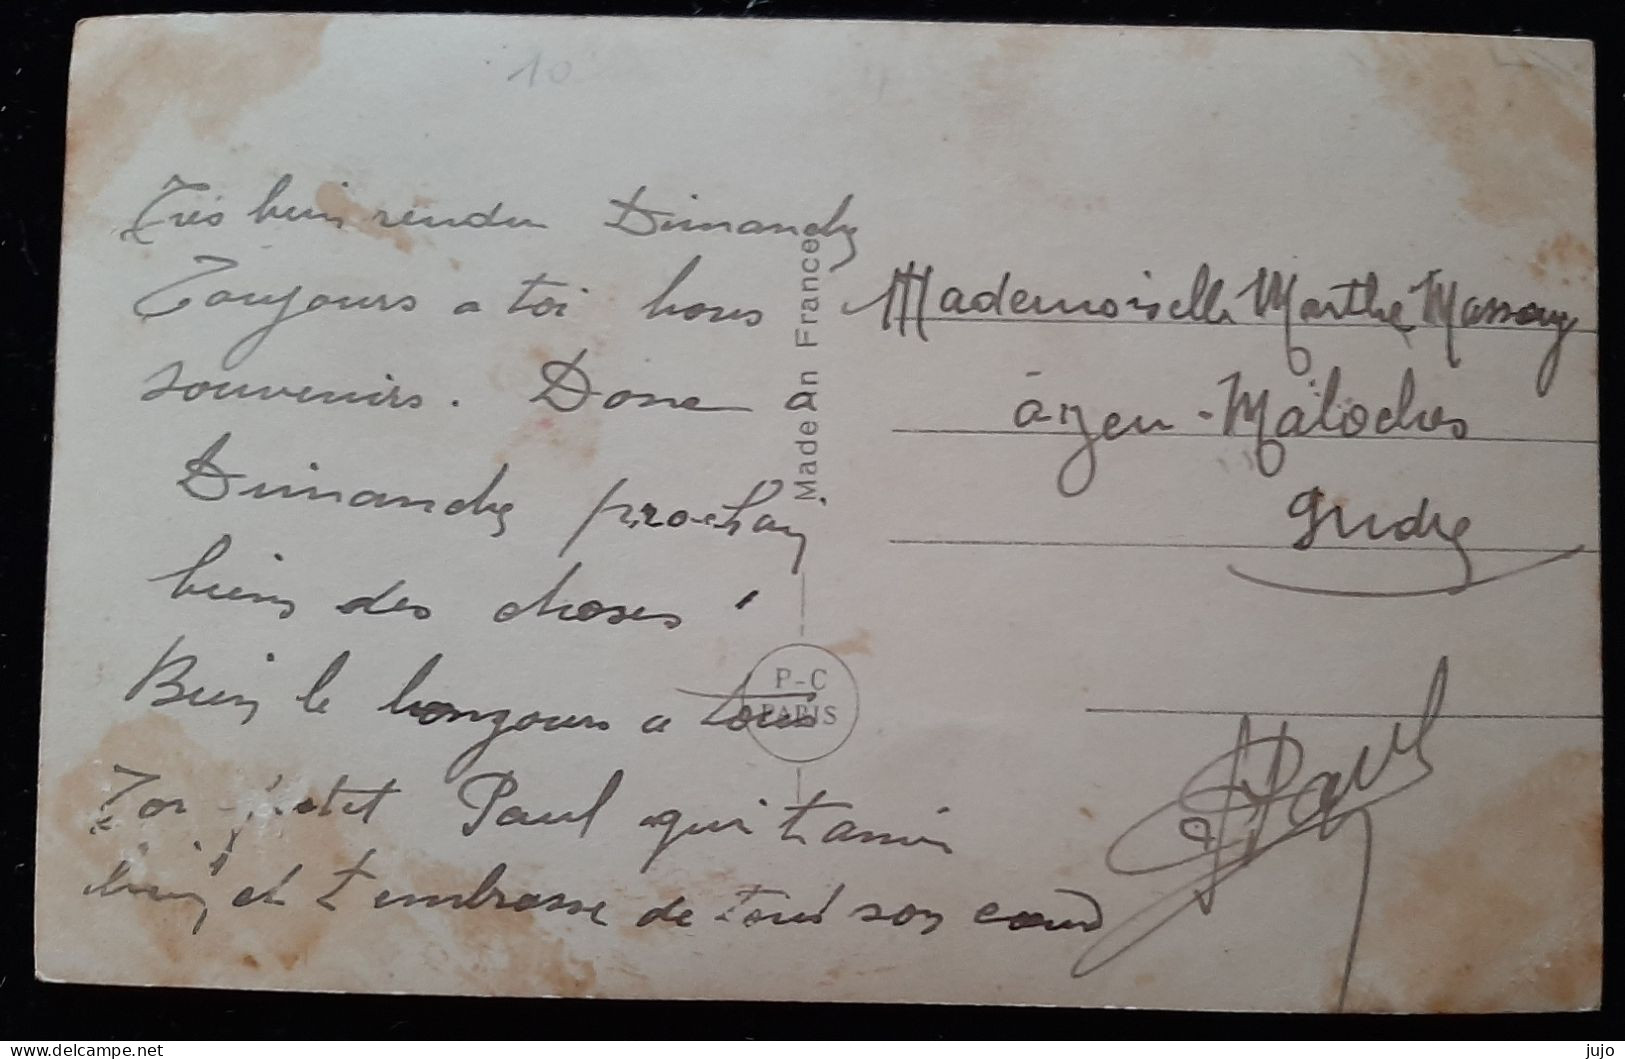 10
Très bien rendu Dimanche
Toujours a toi bons
souvenirs. Donc a
Dimanche prochain
biens des choses !
Bien le bonjours a tous
Ton petit Paul qui t'aime
bien et t'embrasse de tout son cœur
Made in France
P-C
PARIS
Mademoiselle Marthe
à-Jeu-Maloches
Indre
Paul
delcampe.net
jujo